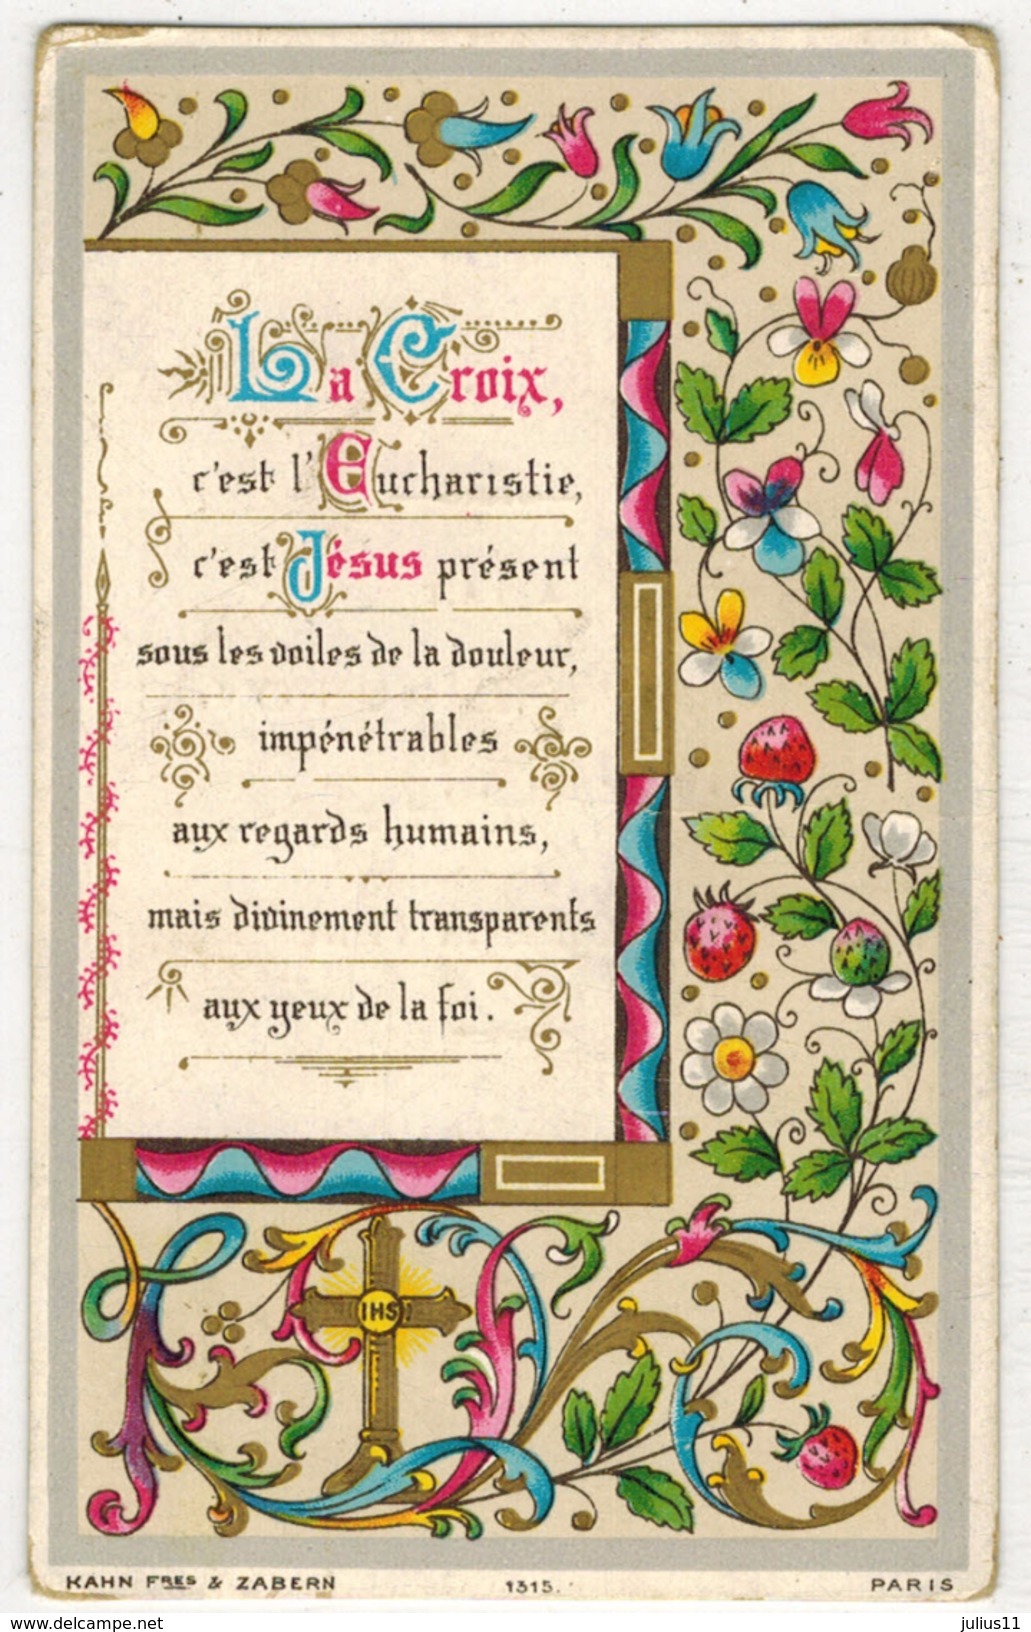 La Croix,
c'est l'Eucharistie,
c'est Jésus présent
sous les voiles de la douleur,
impénétrables
aux regards humains,
mais divinement transparents
aux yeux de la foi.
IHS
KAHN FRES & ZABERN 1315. PARIS
www.delcampe.net julius11